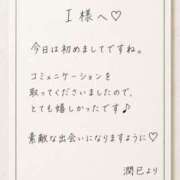 I 様へ♡
今日は初めましてですね。
コミュニケーションを
取ってくださいましたので、
とても嬉しかったです♪
素敵な出会いになりますように♡
潤巳より